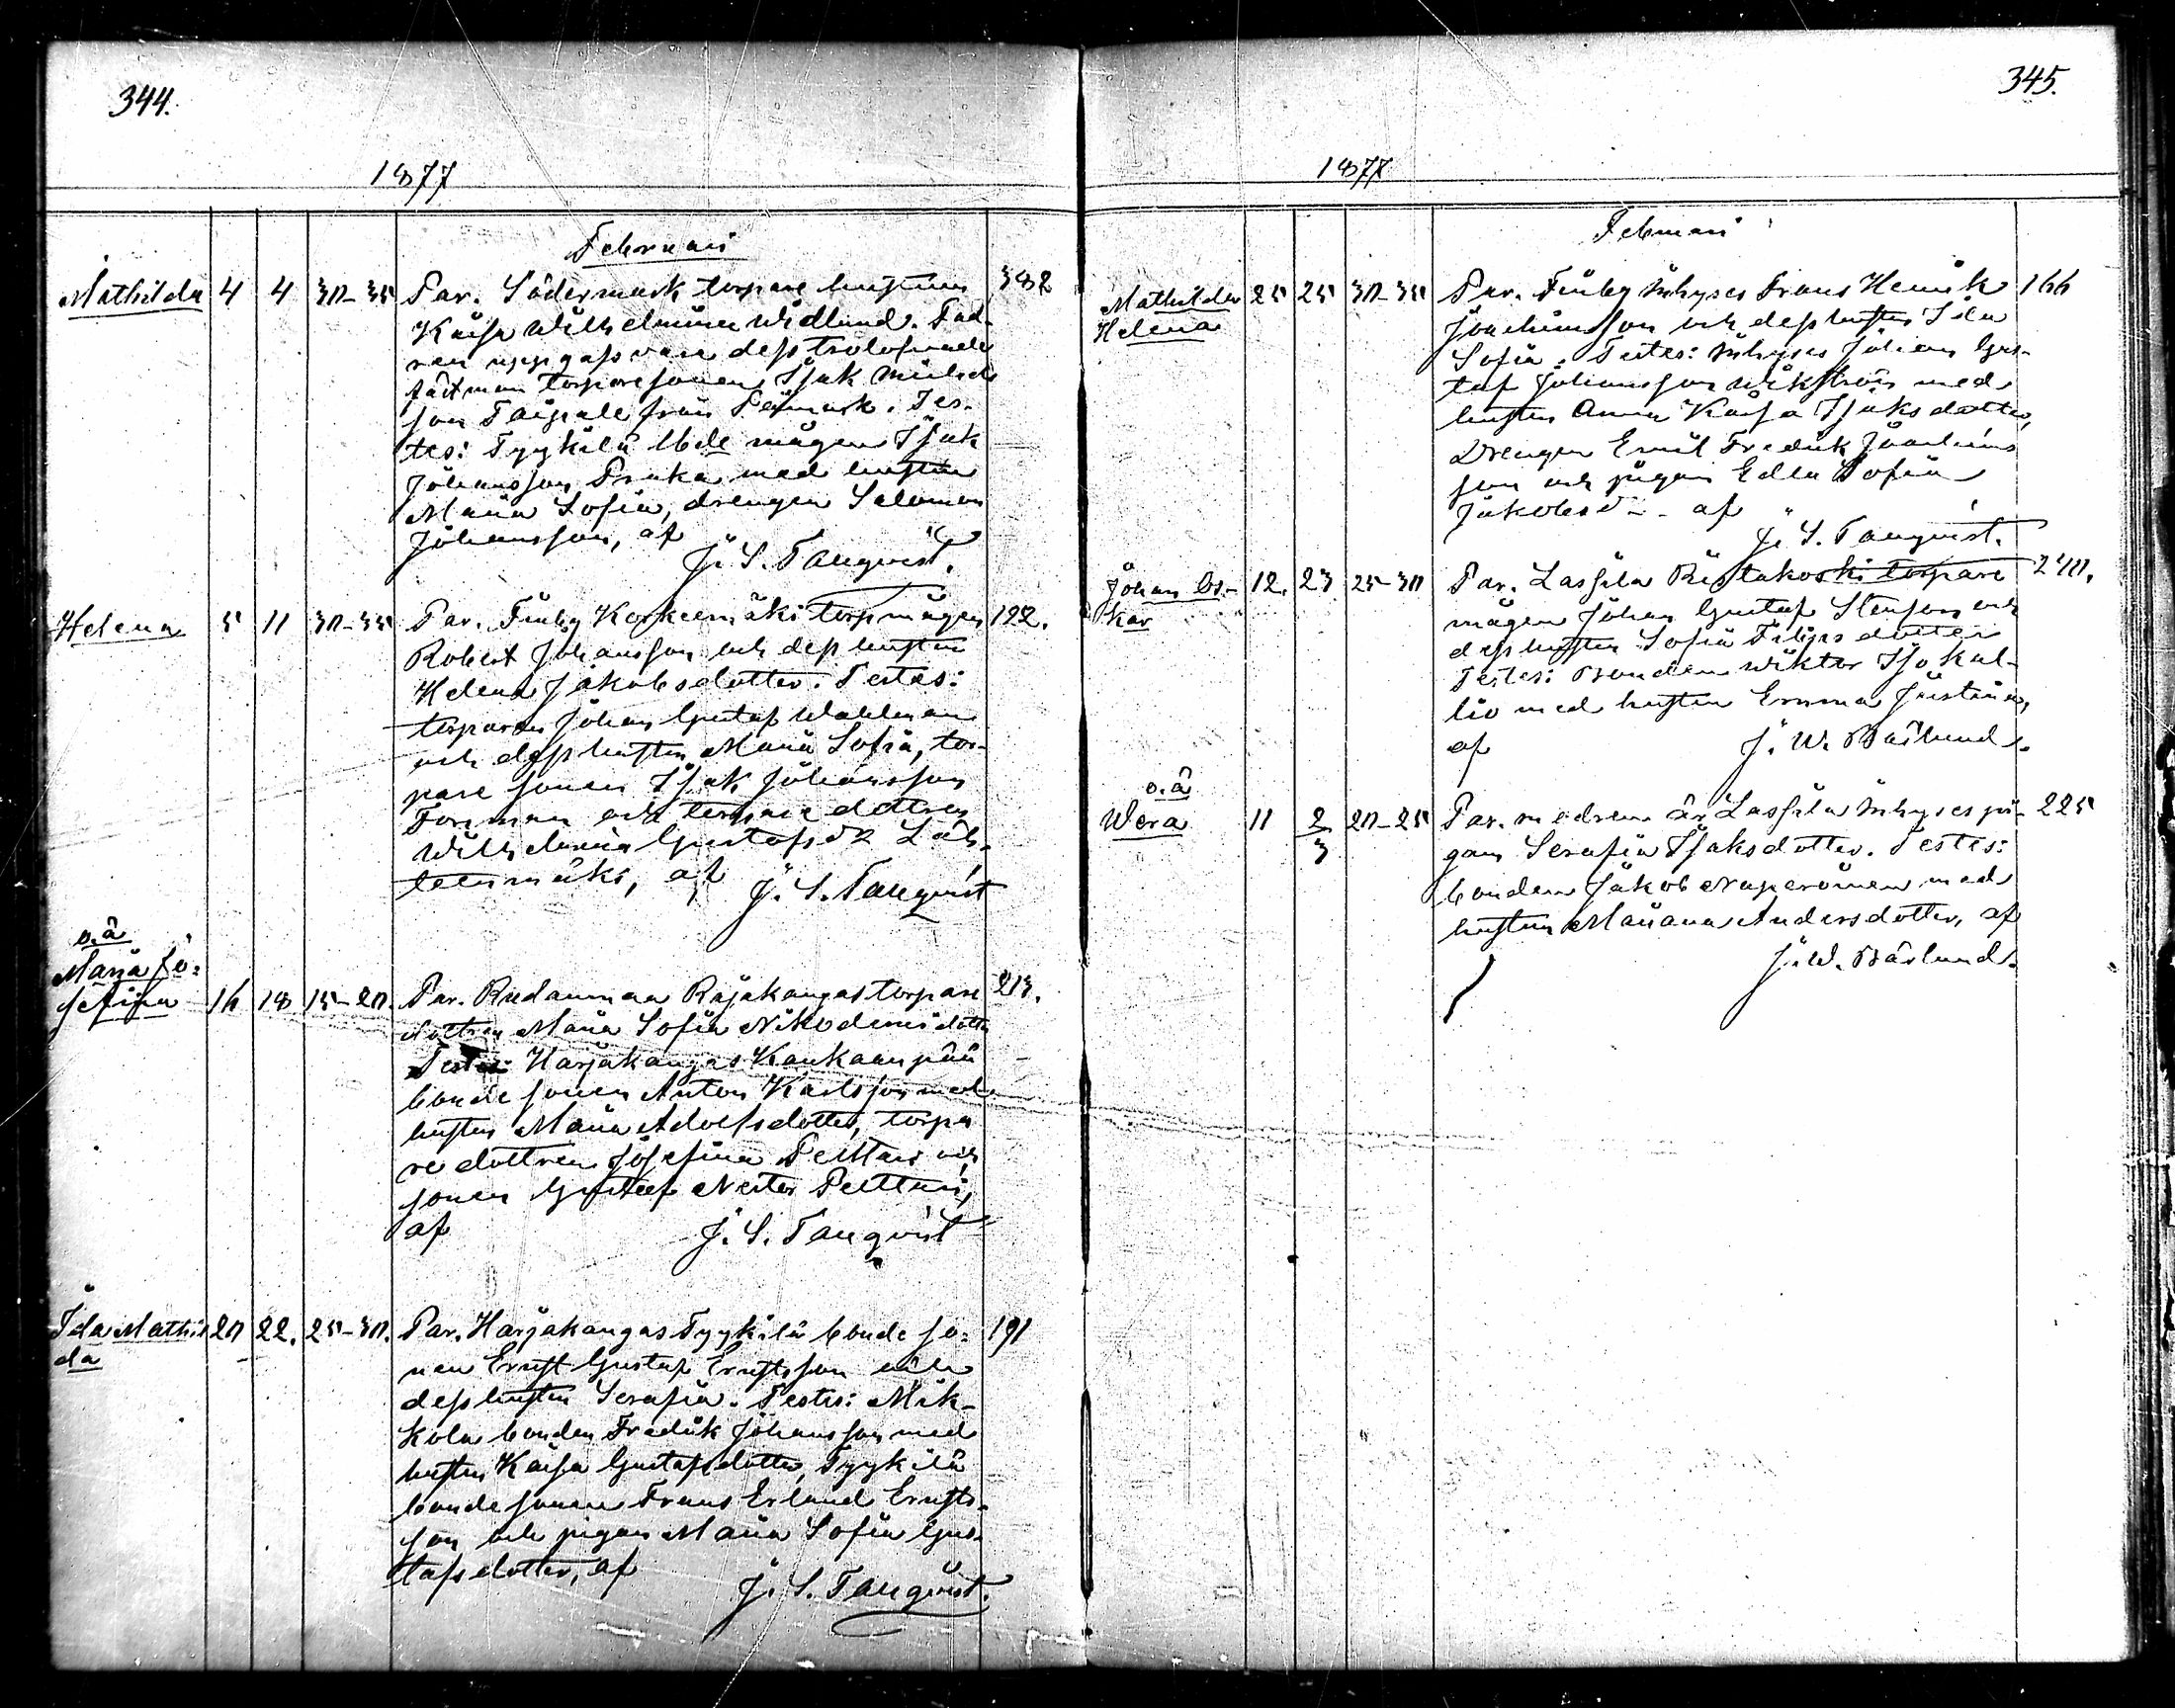 344.
1877
Februari
Mathilda 4 4 30-35 Par. Södermark torpare hustrun 382
Kaisa Wilhelmina Widlund. Fad-
ren uppgafs vara dess trolofvade
fästman torparesonen Isak Mickels
son Taipale från Påmark. Tes-
tes: Tyykilä Ibde mågen Isak
Johansson Pruka med hustru
Maria Sofia, drengen Salomon
Johansson, af
J. S. Tanqvist.
Helena 5 11 30-35 Par. Finby Korkeemäki torp mågen 122.
Robert Johansson och dess hustru
Helena Jakobsdotter. Testes:
torparen Johan Gustaf Wahlman
och dess hustru Maria Sofia, tor-
pare sonen Isak Johansson
Forsman och torpare dottren
Wilhelmina Gustafs dr Läh-
teenmäki, af
J. S. Tanqvist
o.ä
Maria Jo-
sefina 16 18 15-20. Par. Rudanmaa Rajakangas torpare 213.
dottren Maria Sofia Nikodemi dotter
Testes: Harjakangas Kankaanpää
bonde sonen Anton Karlsson med
hustru Maria Adolfsdotter, torpa
re dottren Josefina Pelttari och
sonen Gustaf Nestor Pelttari,
af
J. S. Tanqvist
Ida Mathil 20 22. 25-30. Par. Harjakangas Tyykilä bonde so- 191
da
nen Ernst Gustaf Ernstsson och
dess hustru Serafia. Testes: Mik-
kola bonden Fredrik Johansson med
hustru Kaisa Gustafsdotter, Tyykilä
bonde sonen Frans Erland Ernsts-
son och pigan Maria Sofia Gus-
tafsdotter, af
J. S. Tanqvist.
345.
1877
Februari
Mathilda 25 25 30-35 Par. Finby Inhyses Frans Henrik 166
Helena
Joachimsson och dess hustru Ida
Sofia. Testes: Inhyses Johan Gus-
taf Johansson Wikström med
hustru Anna Kaisa Isaksdotter,
Drengen Emil Fredrik Joachims
son och pigan Edla Sofia
Jakobsd - - af
J. S. Tanqvist.
Johan Os- 12. 23 25-30 Par. Lassila Ristakoski torpare 240.
kar
mågen Johan Gustaf Stenson och
dess hustru Sofia Filipsdotter
Testes: Bonden Wiktor Isokal-
lio med hustru Emma Justina,
af
J. W. Bärlund.
o.ä
Wera 11 2/3 20-25 Par. modren är Lassila Inhyses pi- 225
gan Serafia Isaksdotter. Testes:
bonden Jakob Naperöinen med
hustru Mariana Andersdotter, af
J. W. Bärlund.